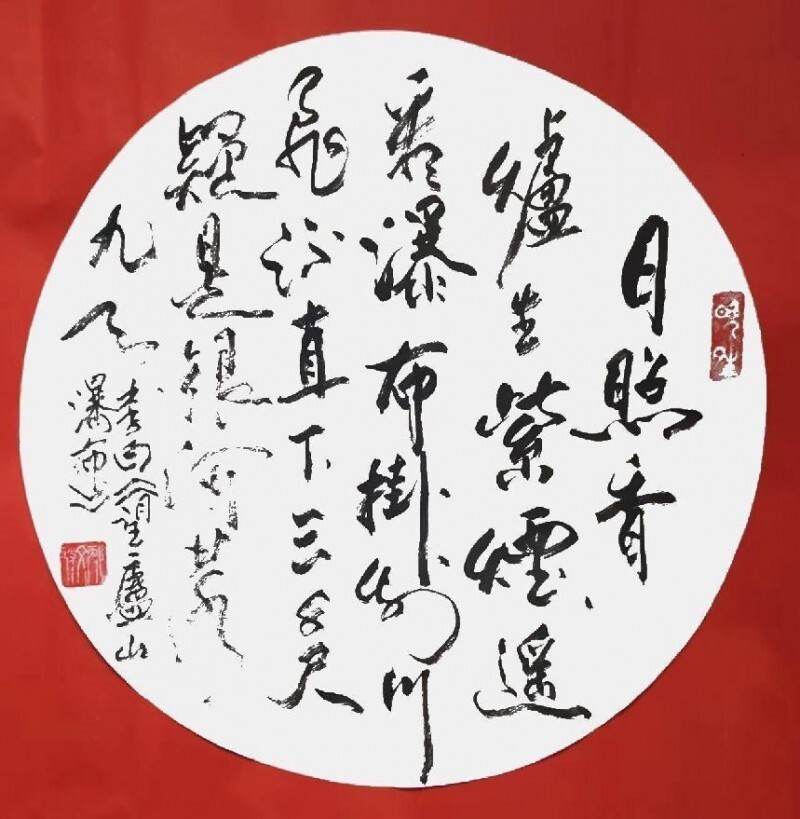 日照香
爐生紫煙遥
看瀑布掛前川
飛流直下三千尺
疑是銀河落
九天
李白望廬山
瀑布